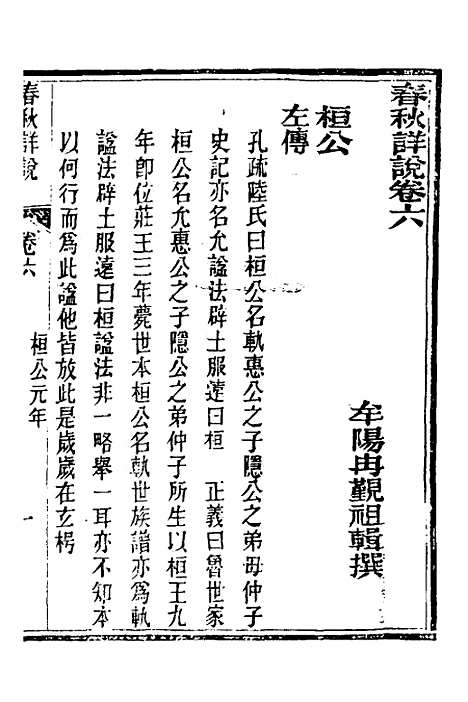 春秋詳說卷六
牟陽冉覲祖輯撰
桓公
左傳
孔疏陸氏曰桓公名軌惠公之子隱公之弟母仲子
史記亦名允諡法辟土服遠曰桓　正義曰魯世家
桓公名允惠公之子隱公之弟仲子所生以桓王九
年卽位莊王三年薨世本桓公名執世族譜亦爲軌
諡法辟土服遠曰桓諡法非一略舉一耳亦不知本
以何行而爲此諡他皆放此是歲歲在玄枵
春秋詳說
卷六
桓公元年
一